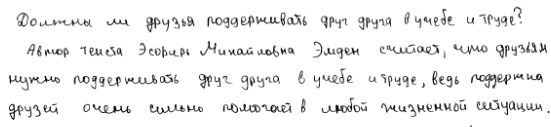 Должны ли друзья поддерживать друг друга в учебе и труде?
Автор текста Эсфирь Михайловна Эмден считает, что друзьям
нужно поддерживать друг друга в учебе и труде, ведь поддержка
друзей очень сильно помогает в любой жизненной ситуации.